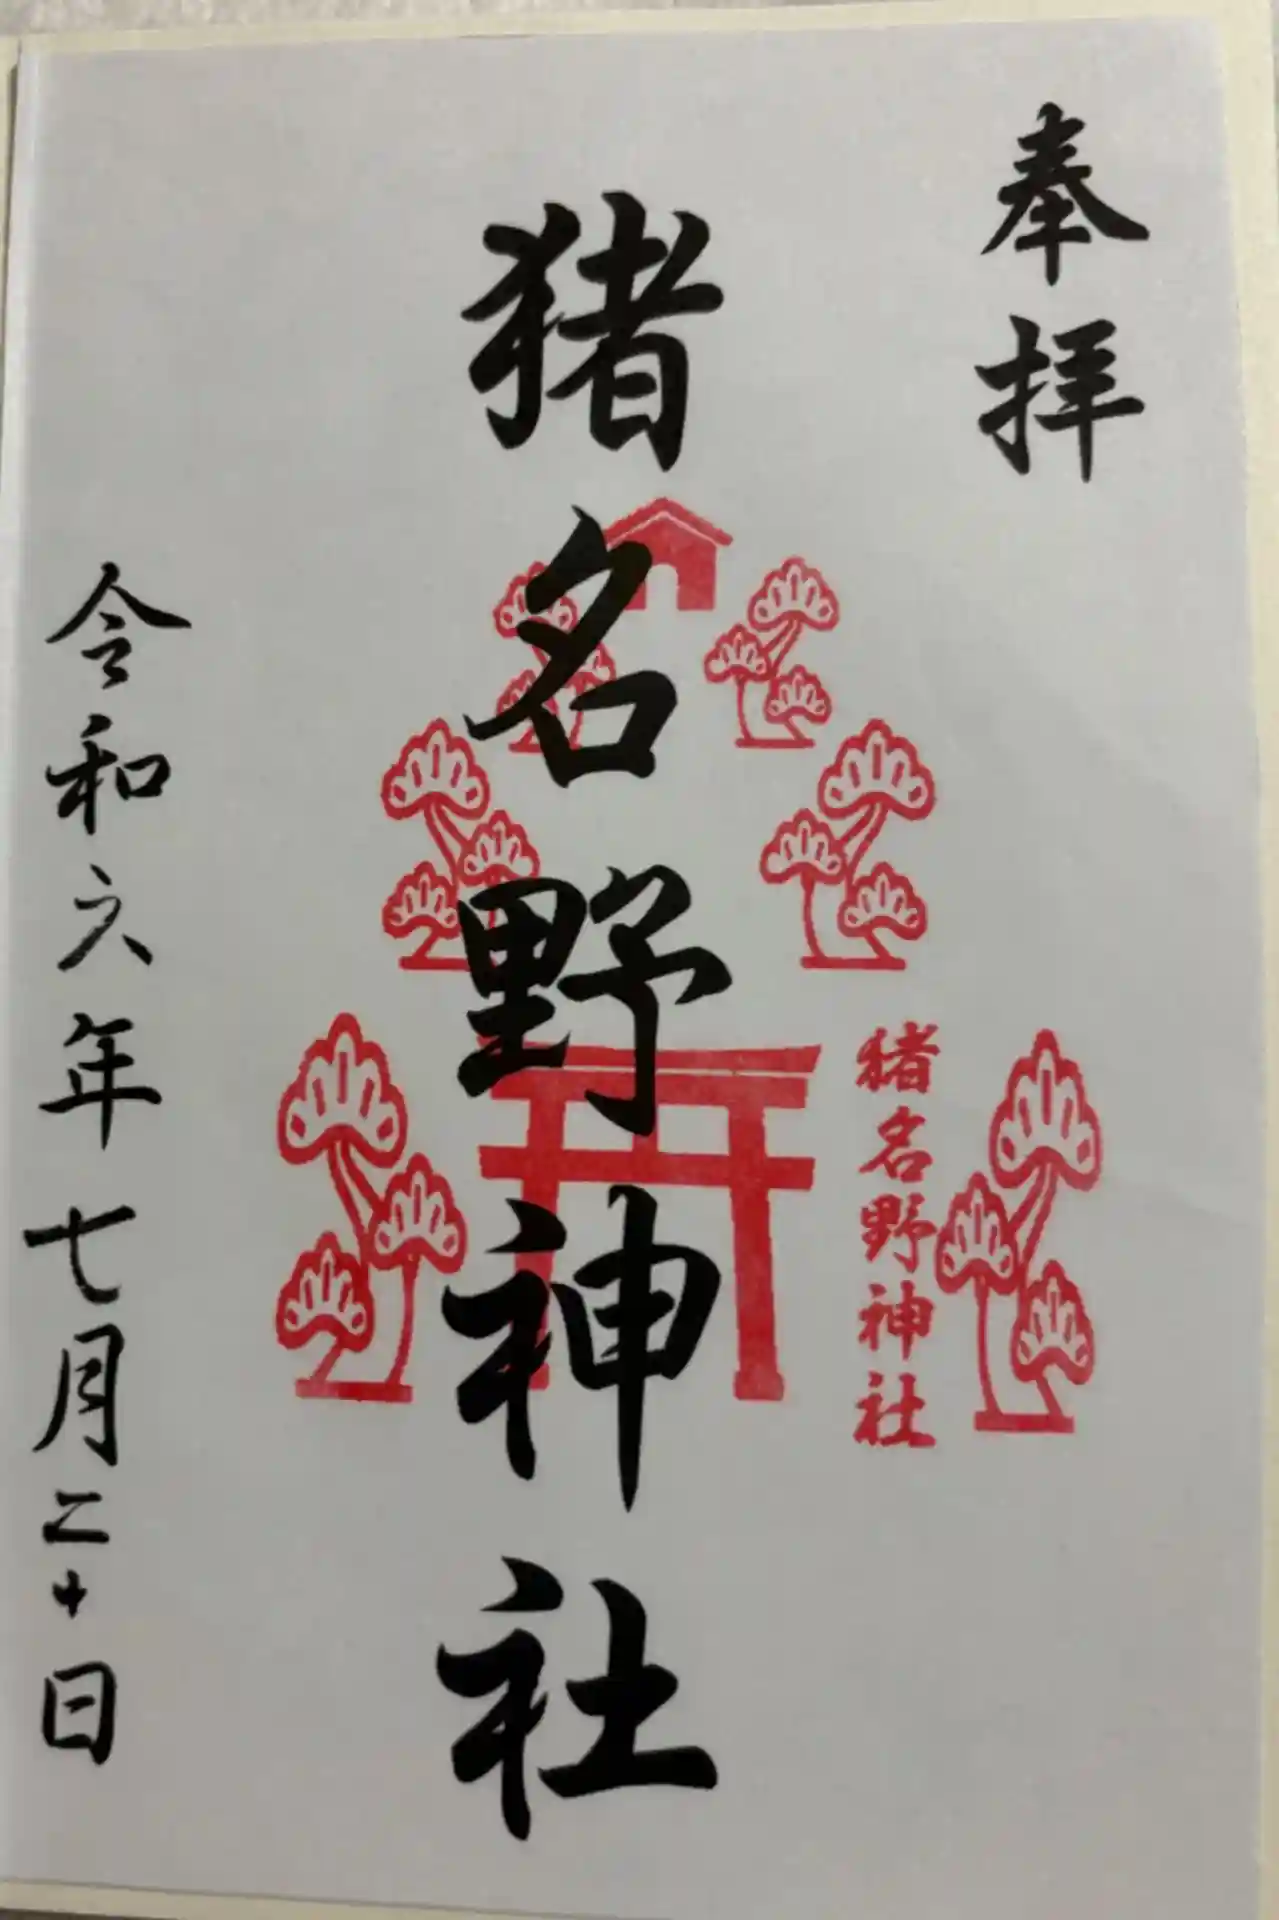 奉拝
猪名野神社
猪名野神社
令和六年七月二十日